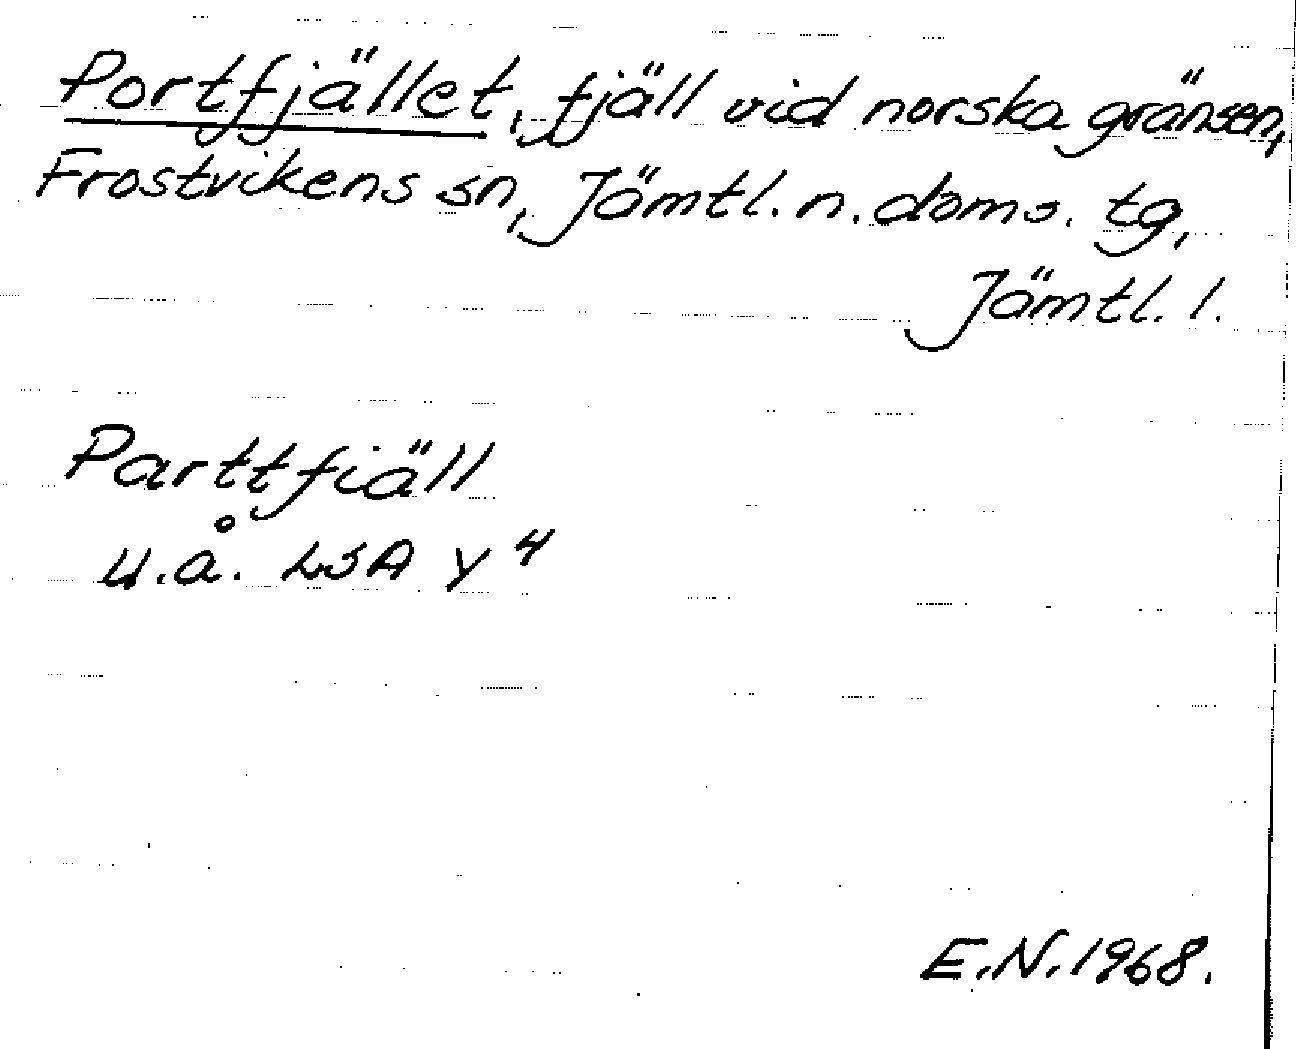 Portfjället, fjäll vid norska gränsen,
Frostvikens sn, Jämtl. n. doms. tg,
Jämtl. l.
Parttfiäll
u.å. LSA Y 4
E.N. 1968.